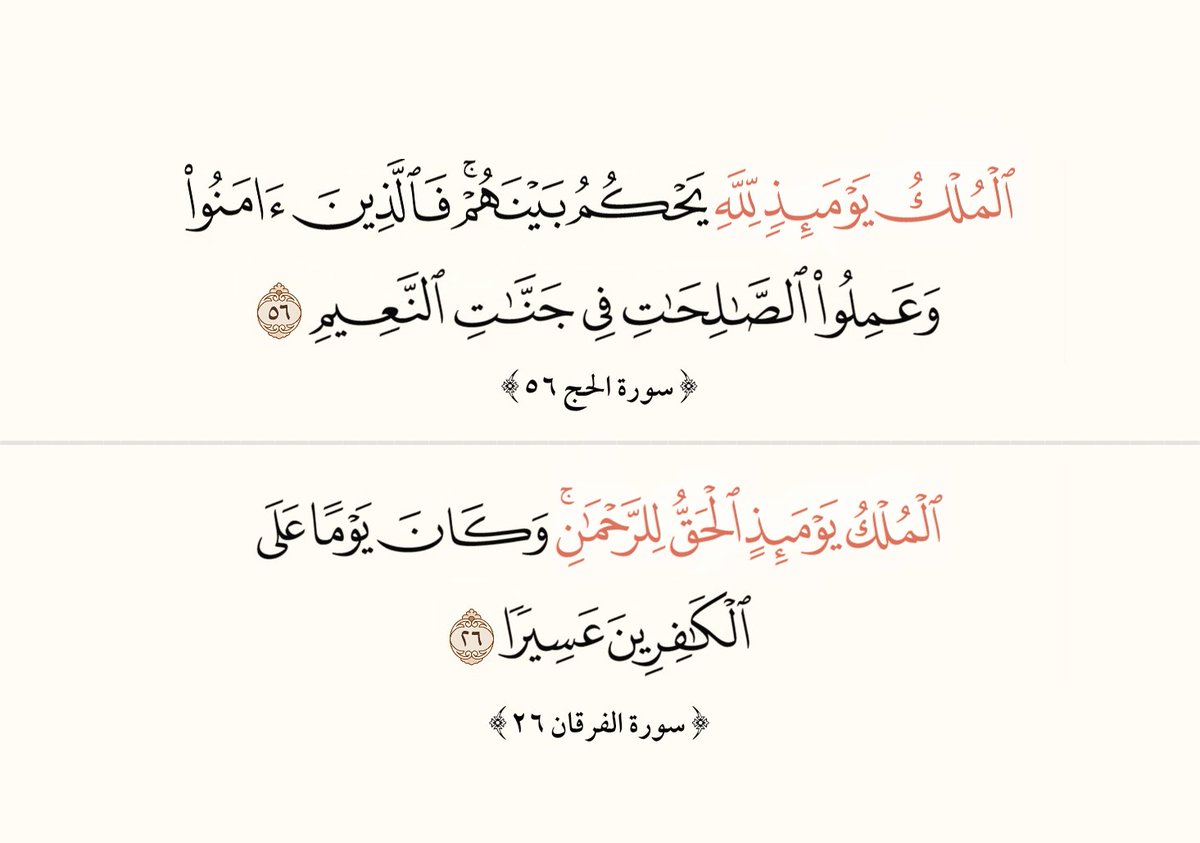 ٱلْمُلْكُ يَوْمَئِذٍ لِّلَّهِ يَحْكُمُ بَيْنَهُمْ ۚ فَٱلَّذِينَ ءَامَنُوا۟
وَعَمِلُوا۟ ٱلصَّـٰلِحَـٰتِ فِى جَنَّـٰتِ ٱلنَّعِيمِ ٥٦
﴿ سورة الحج ٥٦ ﴾
ٱلْمُلْكُ يَوْمَئِذٍ ٱلْحَقُّ لِلرَّحْمَـٰنِ ۚ وَكَانَ يَوْمًا عَلَى
ٱلْكَـٰفِرِينَ عَسِيرًا ٢٦
﴿ سورة الفرقان ٢٦ ﴾